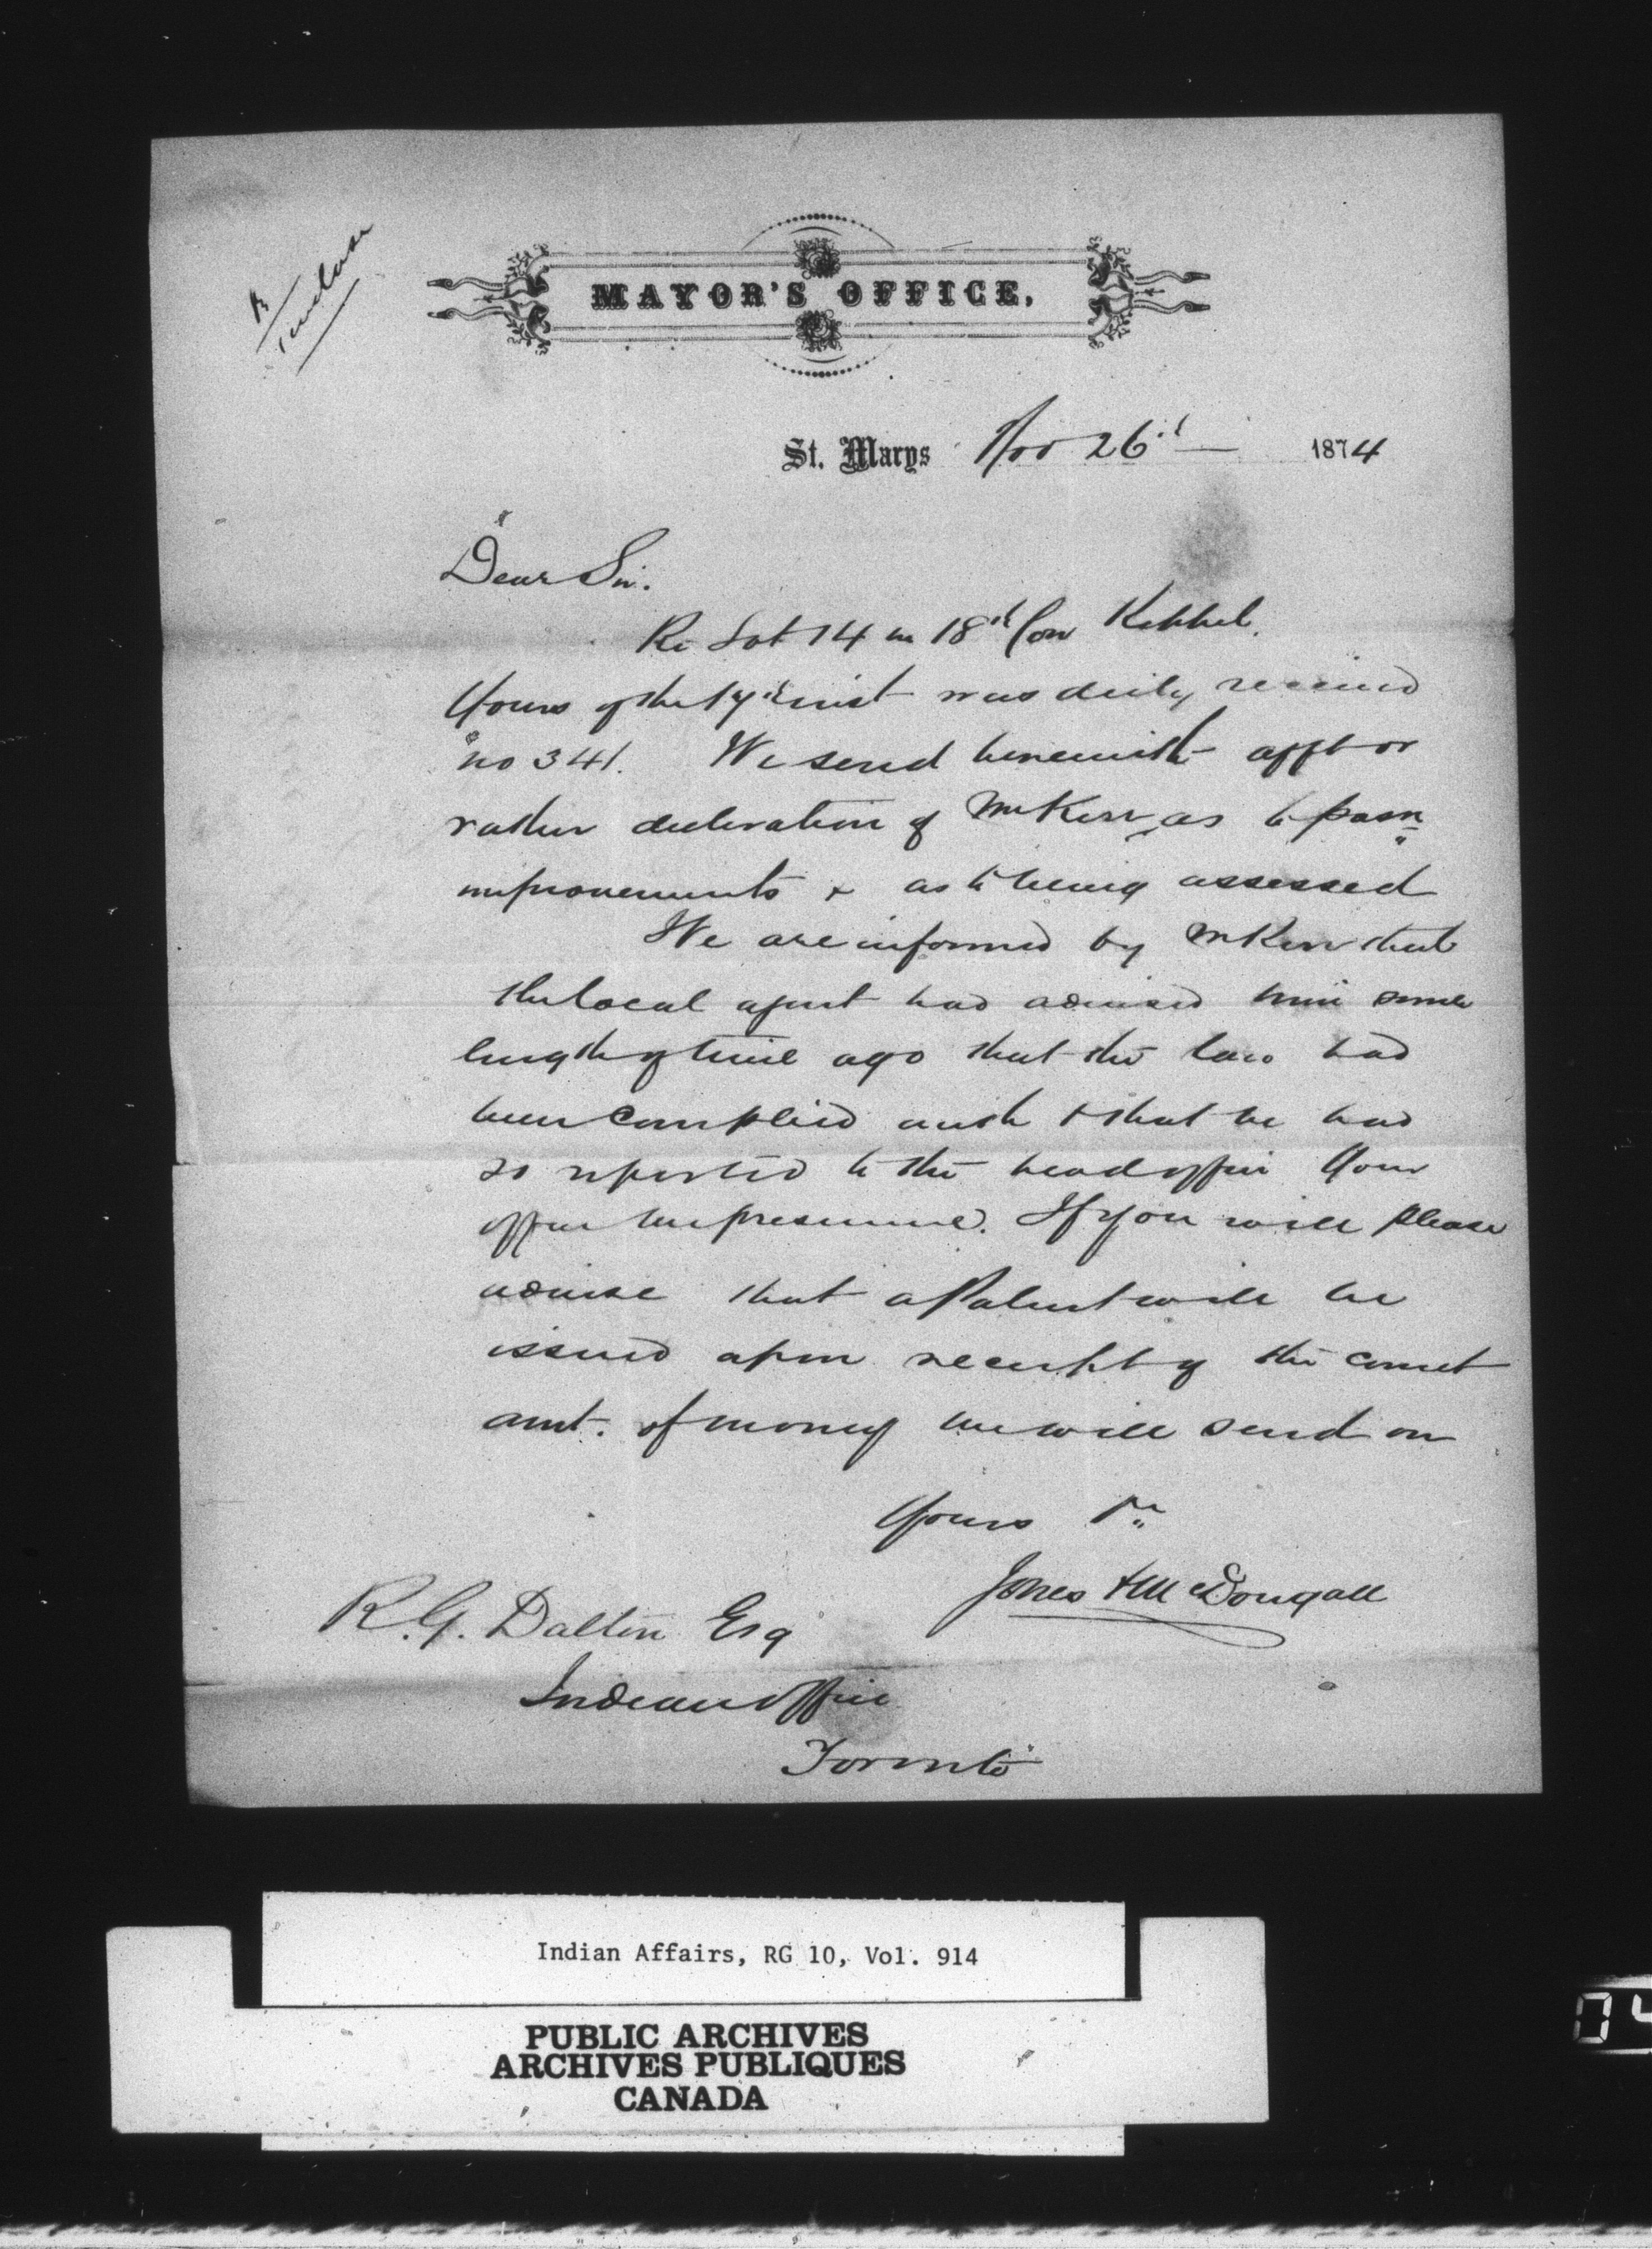 MAYOR'S OFFICE.
St. Marys Nov 26th 1874
Dear Sir.
Re Lot 14 in 18th Con Keppel.
Yours of the inst was duly received
no 341. We send herewith afft or
rather decleration of Mr Kerr as to possn
improvements & as to being assessed
We are informed by Mr Kerr that
the local agent had advised him some
length of time ago that the law had
been complied with & that he had
so reported to the head office Your
office we presume. If you will please
advise that a Patent will be
issued upon receipt of the correct
amt. of money we will send on
Yours Tr
Jones & McDougall
R.G. Dalton Esq
Indian Office
Toronto
Indian Affairs, RG 10, Vol. 914
PUBLIC ARCHIVES
ARCHIVES PUBLIQUES
CANADA
04